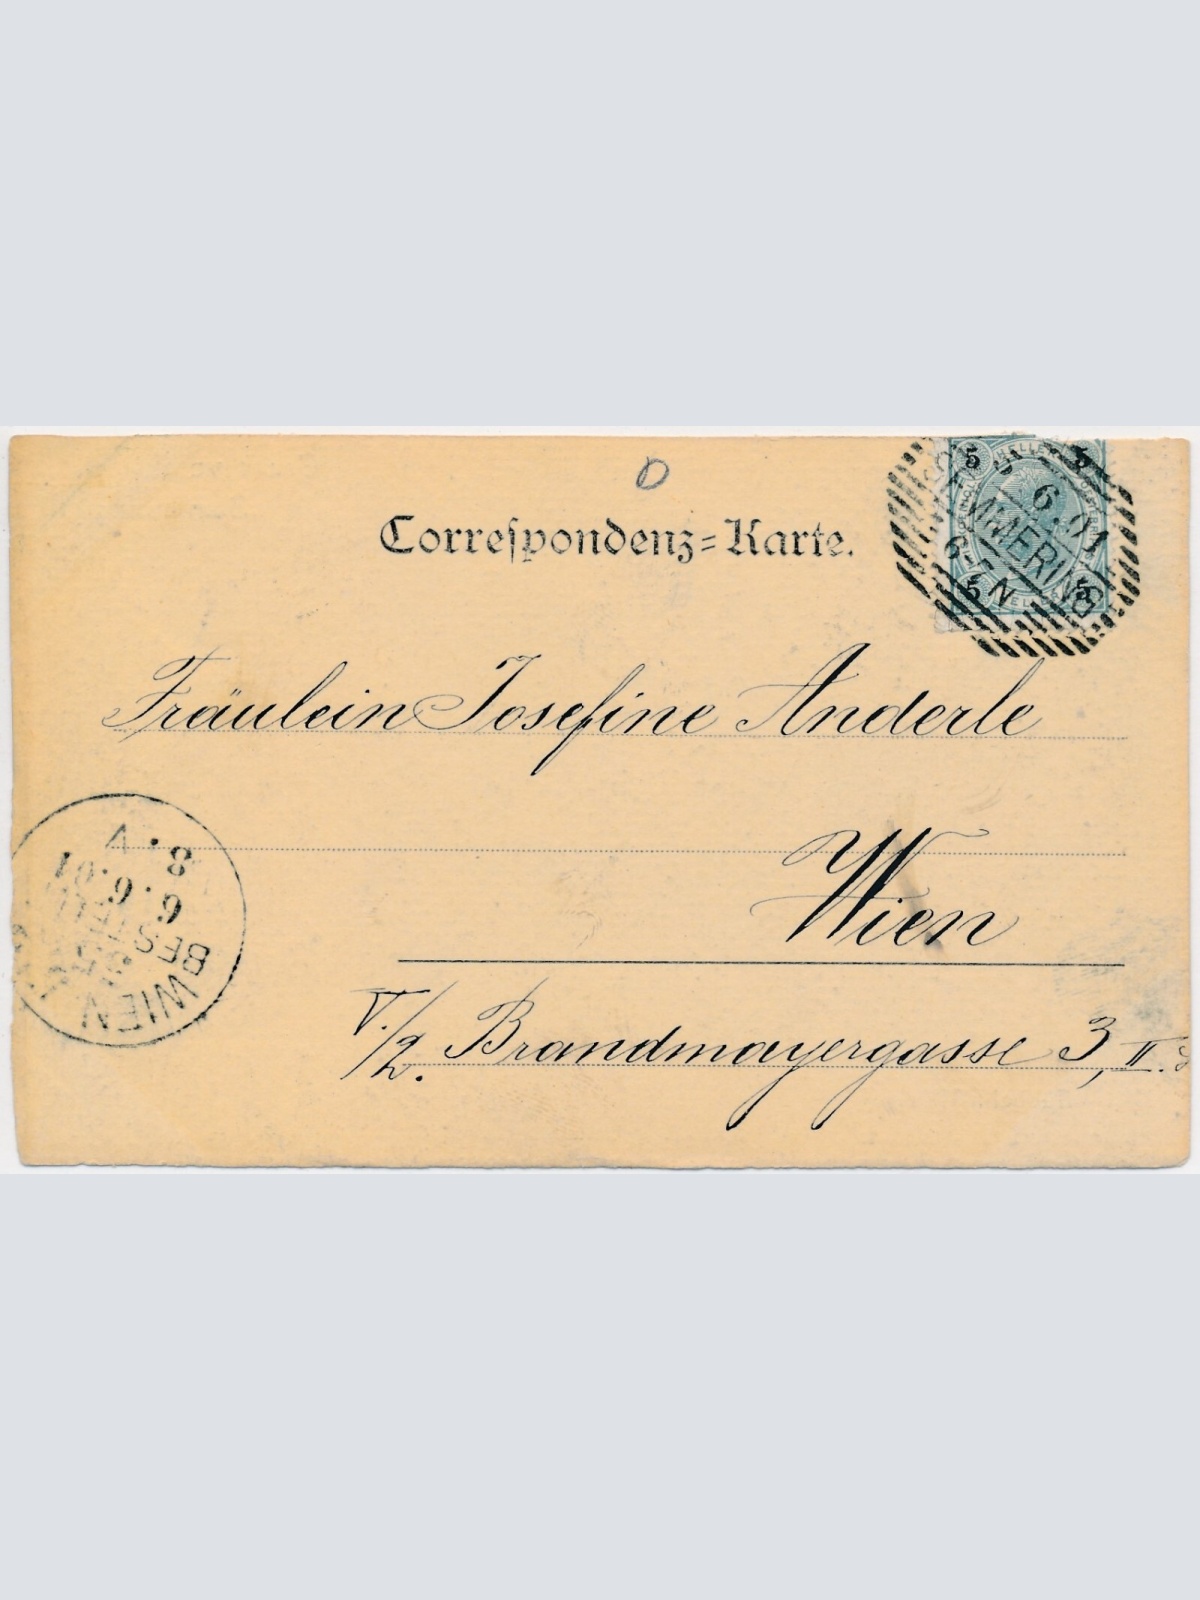 Correspondenz=Karte.
5 HELLER 5
6.01
SIMMERING
6-N
5 5
Fräulein Josefine Anderle
Wien
V./2. Brandmayergasse 3, II.
8.V
6.6.01
BESTELLT
WIEN